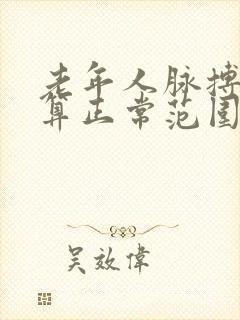 老年人脉搏
算正常范围
吴效偉